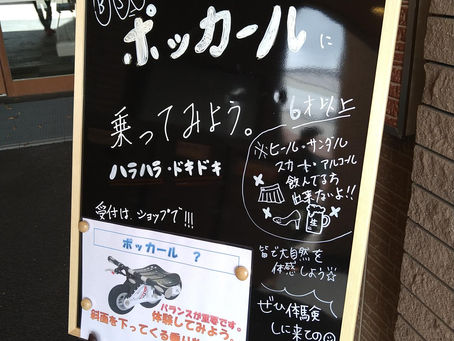 ポッカールに
乗ってみよう。
6才以上
ハラハラ・ドキドキ
※ヒール・サンダル
スカート・アルコール
飲んでる方
出来ないよ!!
生
受付は、ショップで!!!
皆で大自然を
体感しよう☆
ぜひ体験
しに来ての
ポッカール ?
バランスが重要です。
体験してみよう。
斜面を下ってくる乗り